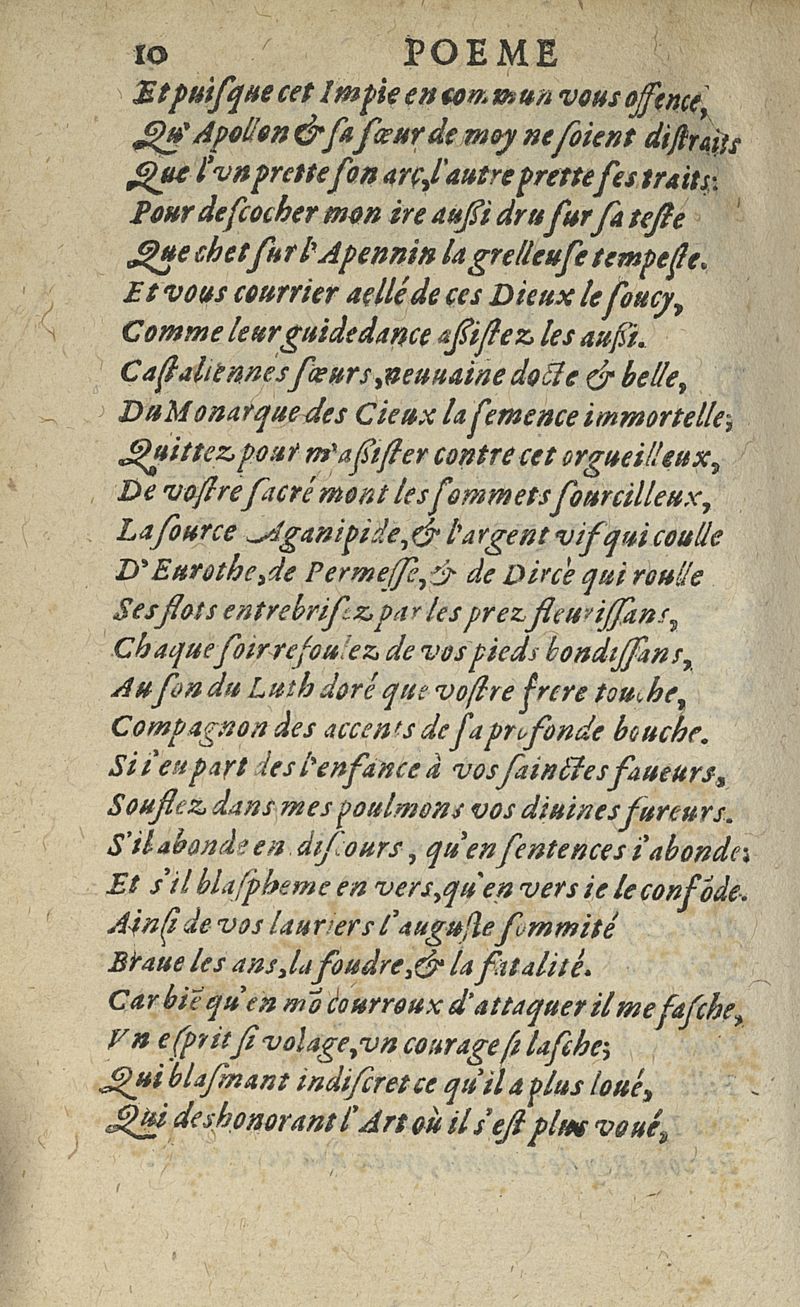 10 POEME
Et puiſque cet Impie en commun vous offence,
Qu' Apollon & ſa ſœur de moy ne ſoient diſtraits
Que l'vn prette ſon arc, l'autre prette ſes traits:
Pour deſcocher mon ire auſſi dru ſur ſa teſte
Que chet ſur l'Apennin la grelleuſe tempeſte.
Et vous courrier aellé de ces Dieux le ſoucy,
Comme leur guidedance aſſiſtez les auſſi.
Caſtaliennes ſœurs, neuuaine docte & belle,
Du Monarque des Cieux la ſemence immortelle;
Quittez pour m'aſſiſter contre cet orgueilleux,
De voſtre ſacré mont les ſommets ſourcilleux,
La ſource Aganipide, & l'argent vif qui coulle
D'Eurothe, de Permeſſe, & de Dircè qui roulle
Ses flots entrebriſez par les prez fleuriſſans,
Chaque ſoir refoulez de vos pieds bondiſſans,
Au ſon du Luth doré que voſtre frere touche,
Compagnon des accents de ſa profonde bouche.
Si i'eu part des l'enfance à vos ſainctes faueurs,
Souflez dans mes poulmons vos diuines fureurs.
S'il abonde en diſcours, qu'en ſentences i'abonde;
Et s'il blaſpheme en vers, qu'en vers ie le confõde.
Ainſi de vos lauriers l'auguſte ſommité
Braue les ans, la foudre, & la fatalité.
Car biẽ qu'en mõ courroux d'attaquer il me faſche,
Vn eſprit ſi volage, vn courage ſi laſche;
Qui blaſmant indiſcret ce qu'il a plus loué,
Qui deshonorant l'Art où il s'eſt plus voué,